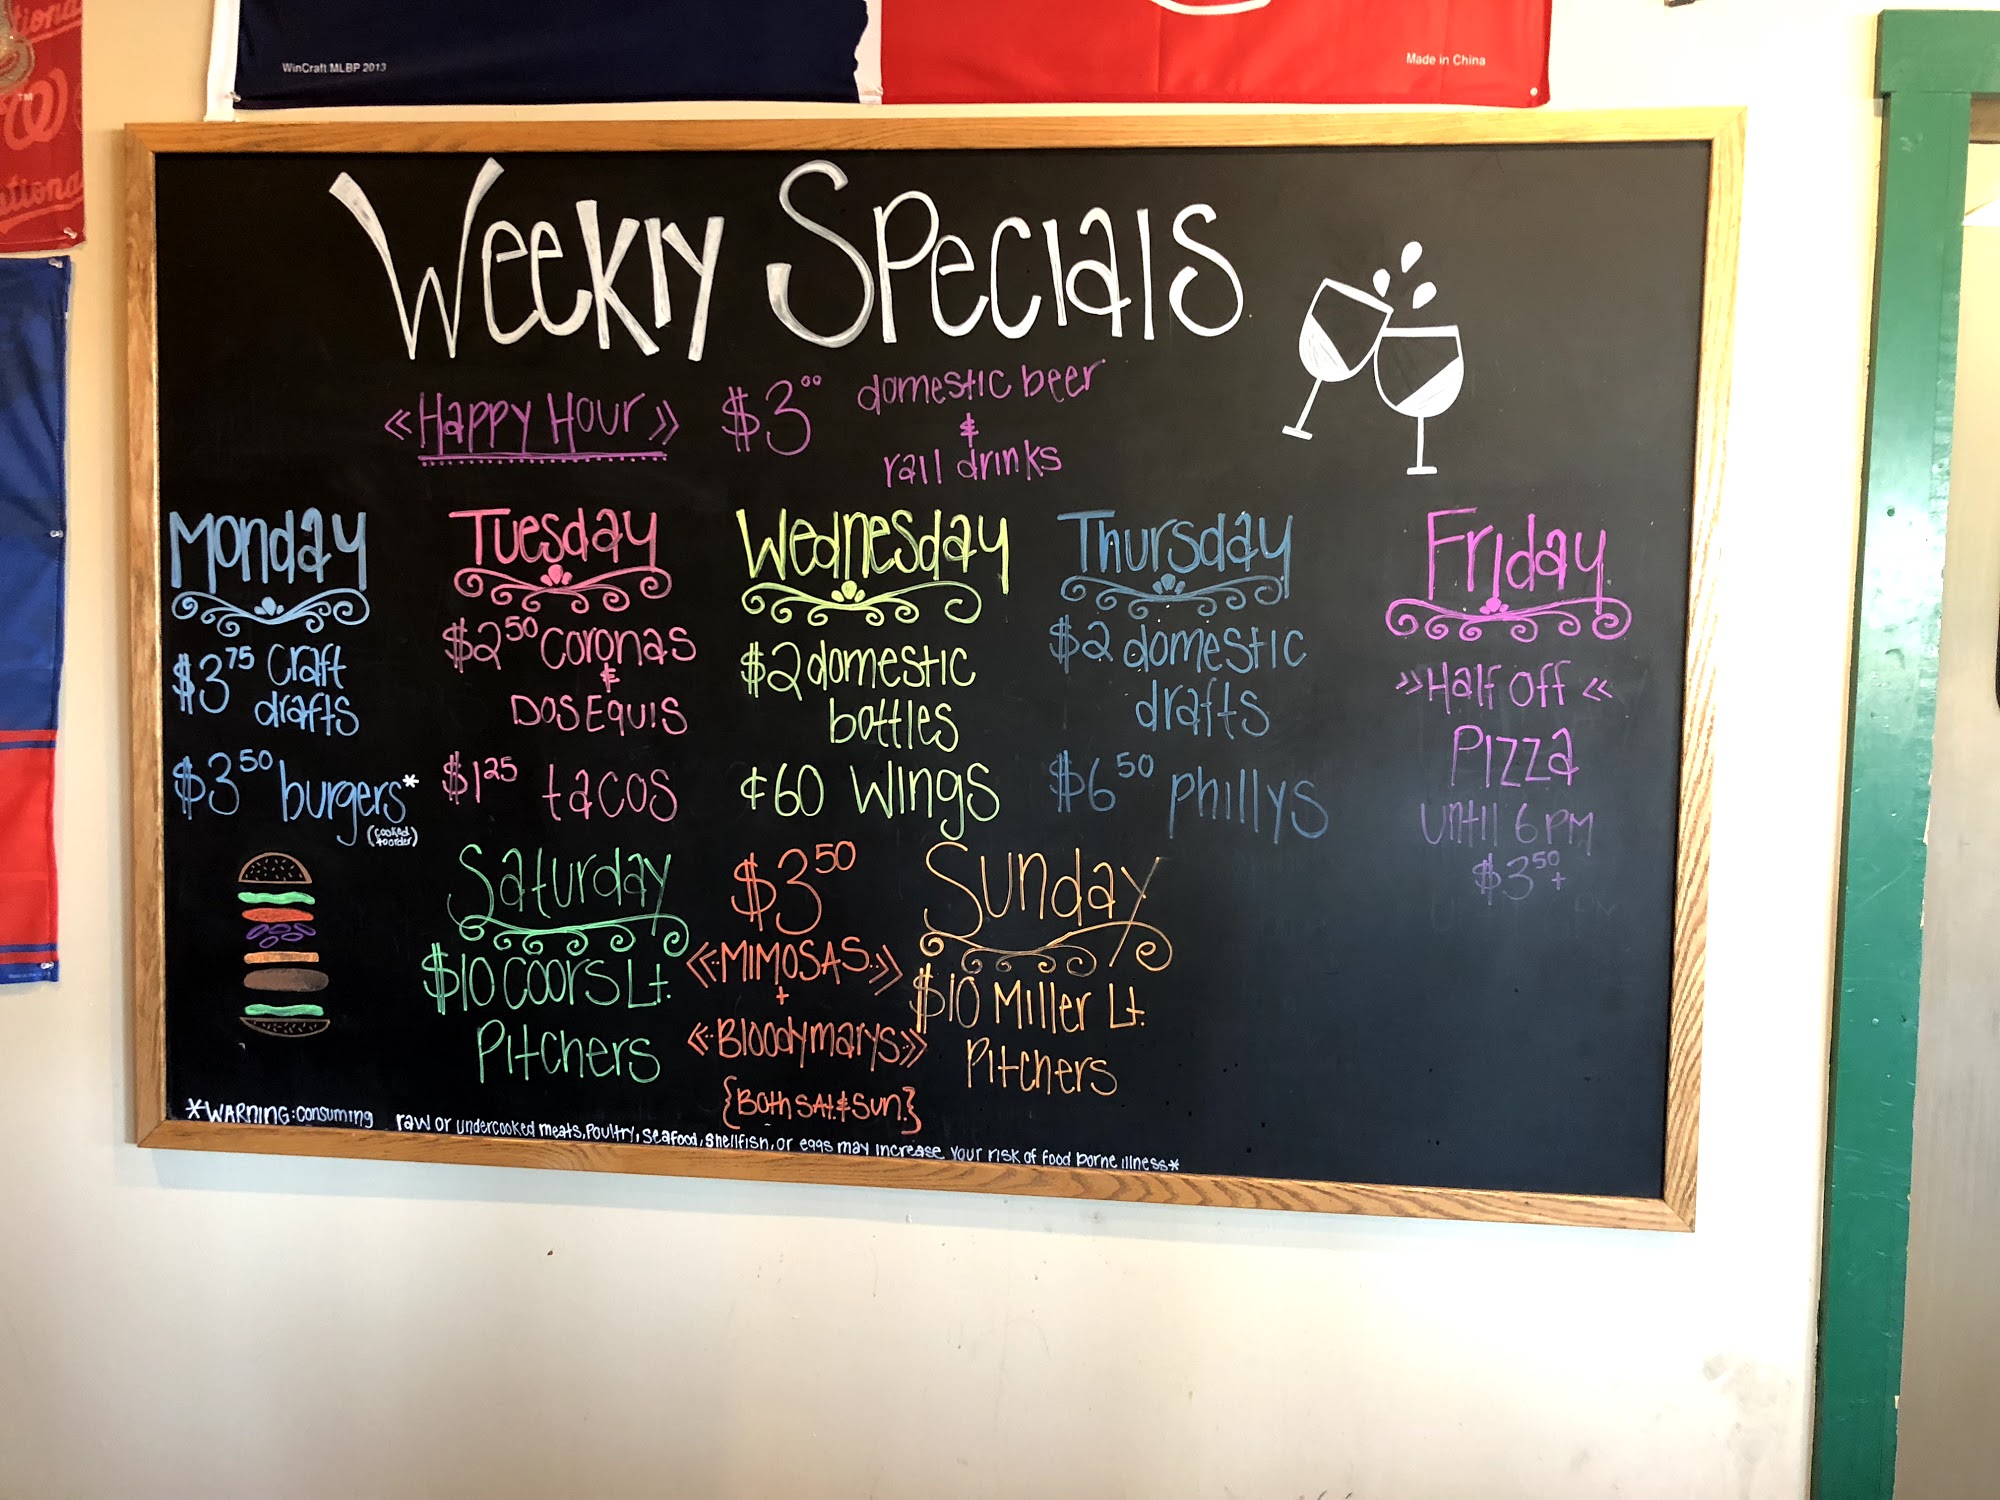 WinCraft MLBP 2013
Made in China
TM
W
Weekly Specials
<<Happy Hour>> $3.00 domestic beer
&
rail drinks
Monday
$3.75 craft
drafts
$3.50 burgers*
(cooked
to order)
Tuesday
$2.50 coronas
&
Dos Equis
$1.25 tacos
Wednesday
$2 domestic
bottles
¢60 wings
Thursday
$2 domestic
drafts
$6.50 phillys
Friday
>>Half off<<
Pizza
until 6 PM
$3.50+
Saturday
$10 Coors Lt.
Pitchers
$3.50
<<Mimosas>>
+
<<Bloodymarys>>
{Both Sat. & Sun.}
Sunday
$10 Miller Lt.
Pitchers
*WARNING: consuming raw or undercooked meats, poultry, seafood, shellfish, or eggs may increase your risk of food borne illness*